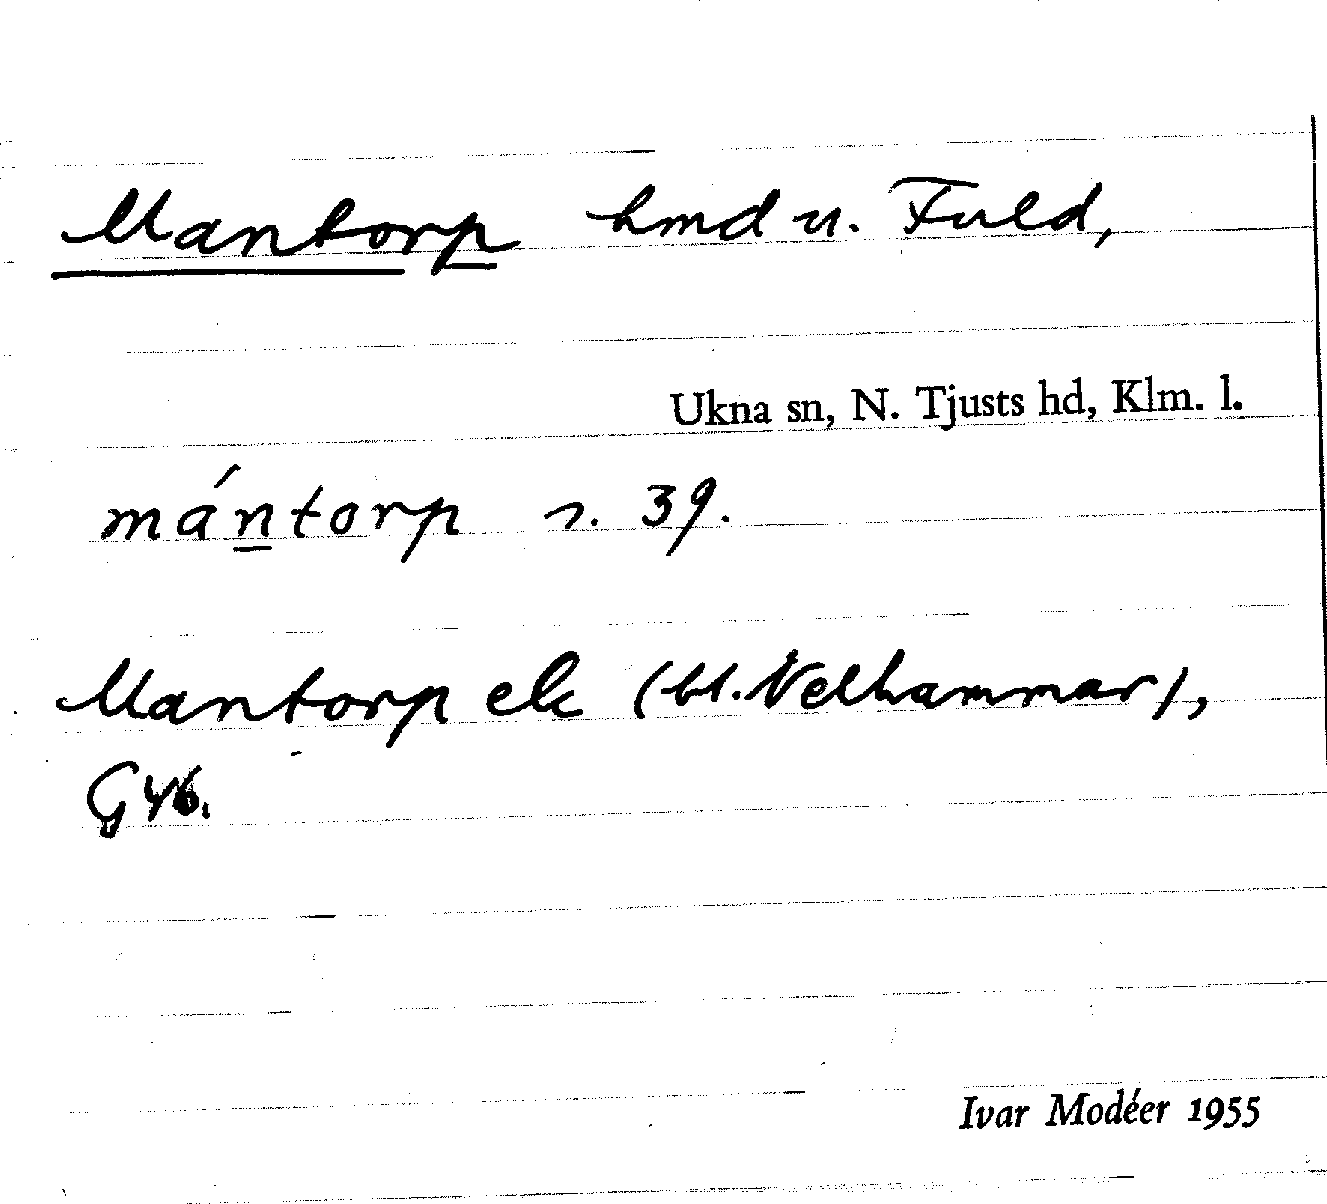 Mantorp hmd u. Fuld,
Ukna sn, N. Tjusts hd, Klm. l.
mántorp s. 39.
Mantorp ek (bl. Nelhammar),
G 46.
Ivar Modéer 1955